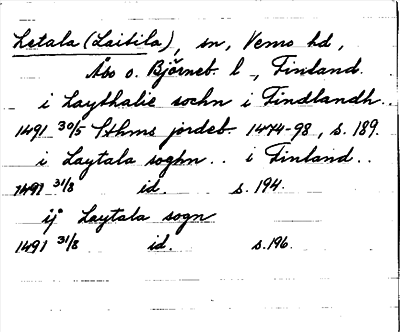 Letala (Laitila), sn, Vemo hd,
Åbo o. Björneb. l, Finland.
i Laythalie sochn i Findlandh..
1491 30/5 Sthms jordeb. 1474-98, s. 189.
i Laytala soghn.. i Finland..
1491 31/8 id. s. 194.
ij Laytala sogn
1491 31/8 id. s. 196.